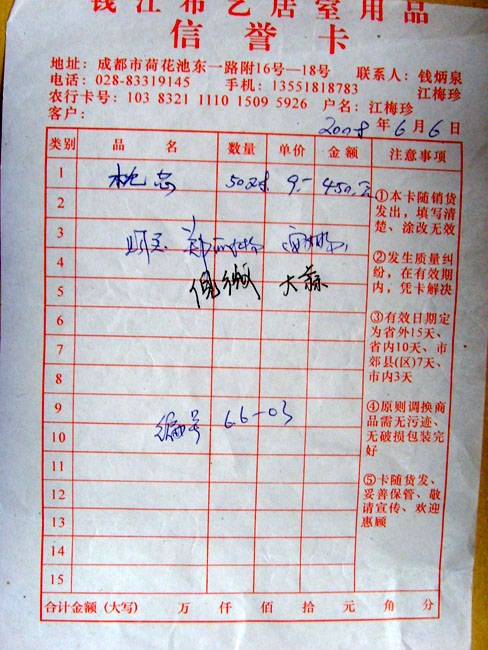 钱江布艺居室用品
信誉卡
地址：成都市荷花池东一路附16号—18号 联系人：钱炳泉
电话：028-83319145 手机：13551818783 江梅珍
农行卡号：103 8321 1110 1509 5926 户名：江梅珍
客户： 2008年6月6日
类别 品名 数量 单价 金额 注意事项
1 枕芯 50对 9.- 450.元
2
3
4
5
6
7
8
9 编号 66-03
10
11
12
13
14
15
①本卡随销货
发出，填写清
楚、涂改无效
②发生质量纠
纷，在有效期
内，凭卡解决
③有效日期定
为省外15天、
省内10天、市
郊县(区)7天、
市内3天
④原则调换商
品需无污迹、
无破损包装完
好
⑤卡随货发、
妥善保管、敬
请宣传、欢迎
惠顾
合计金额（大写） 万 仟 佰 拾 元 角 分